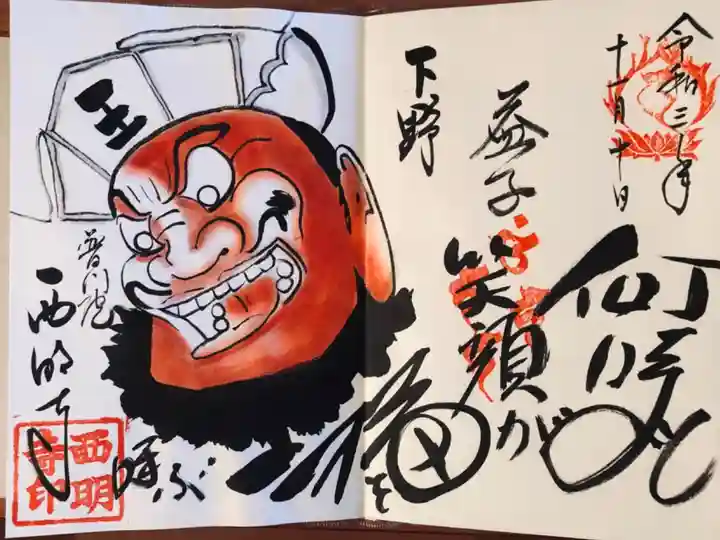 令和三年
十一月十日
何時も
笑顔が
益子
下野
福を
呼ぶ
王
普門院
西明寺
西明寺印